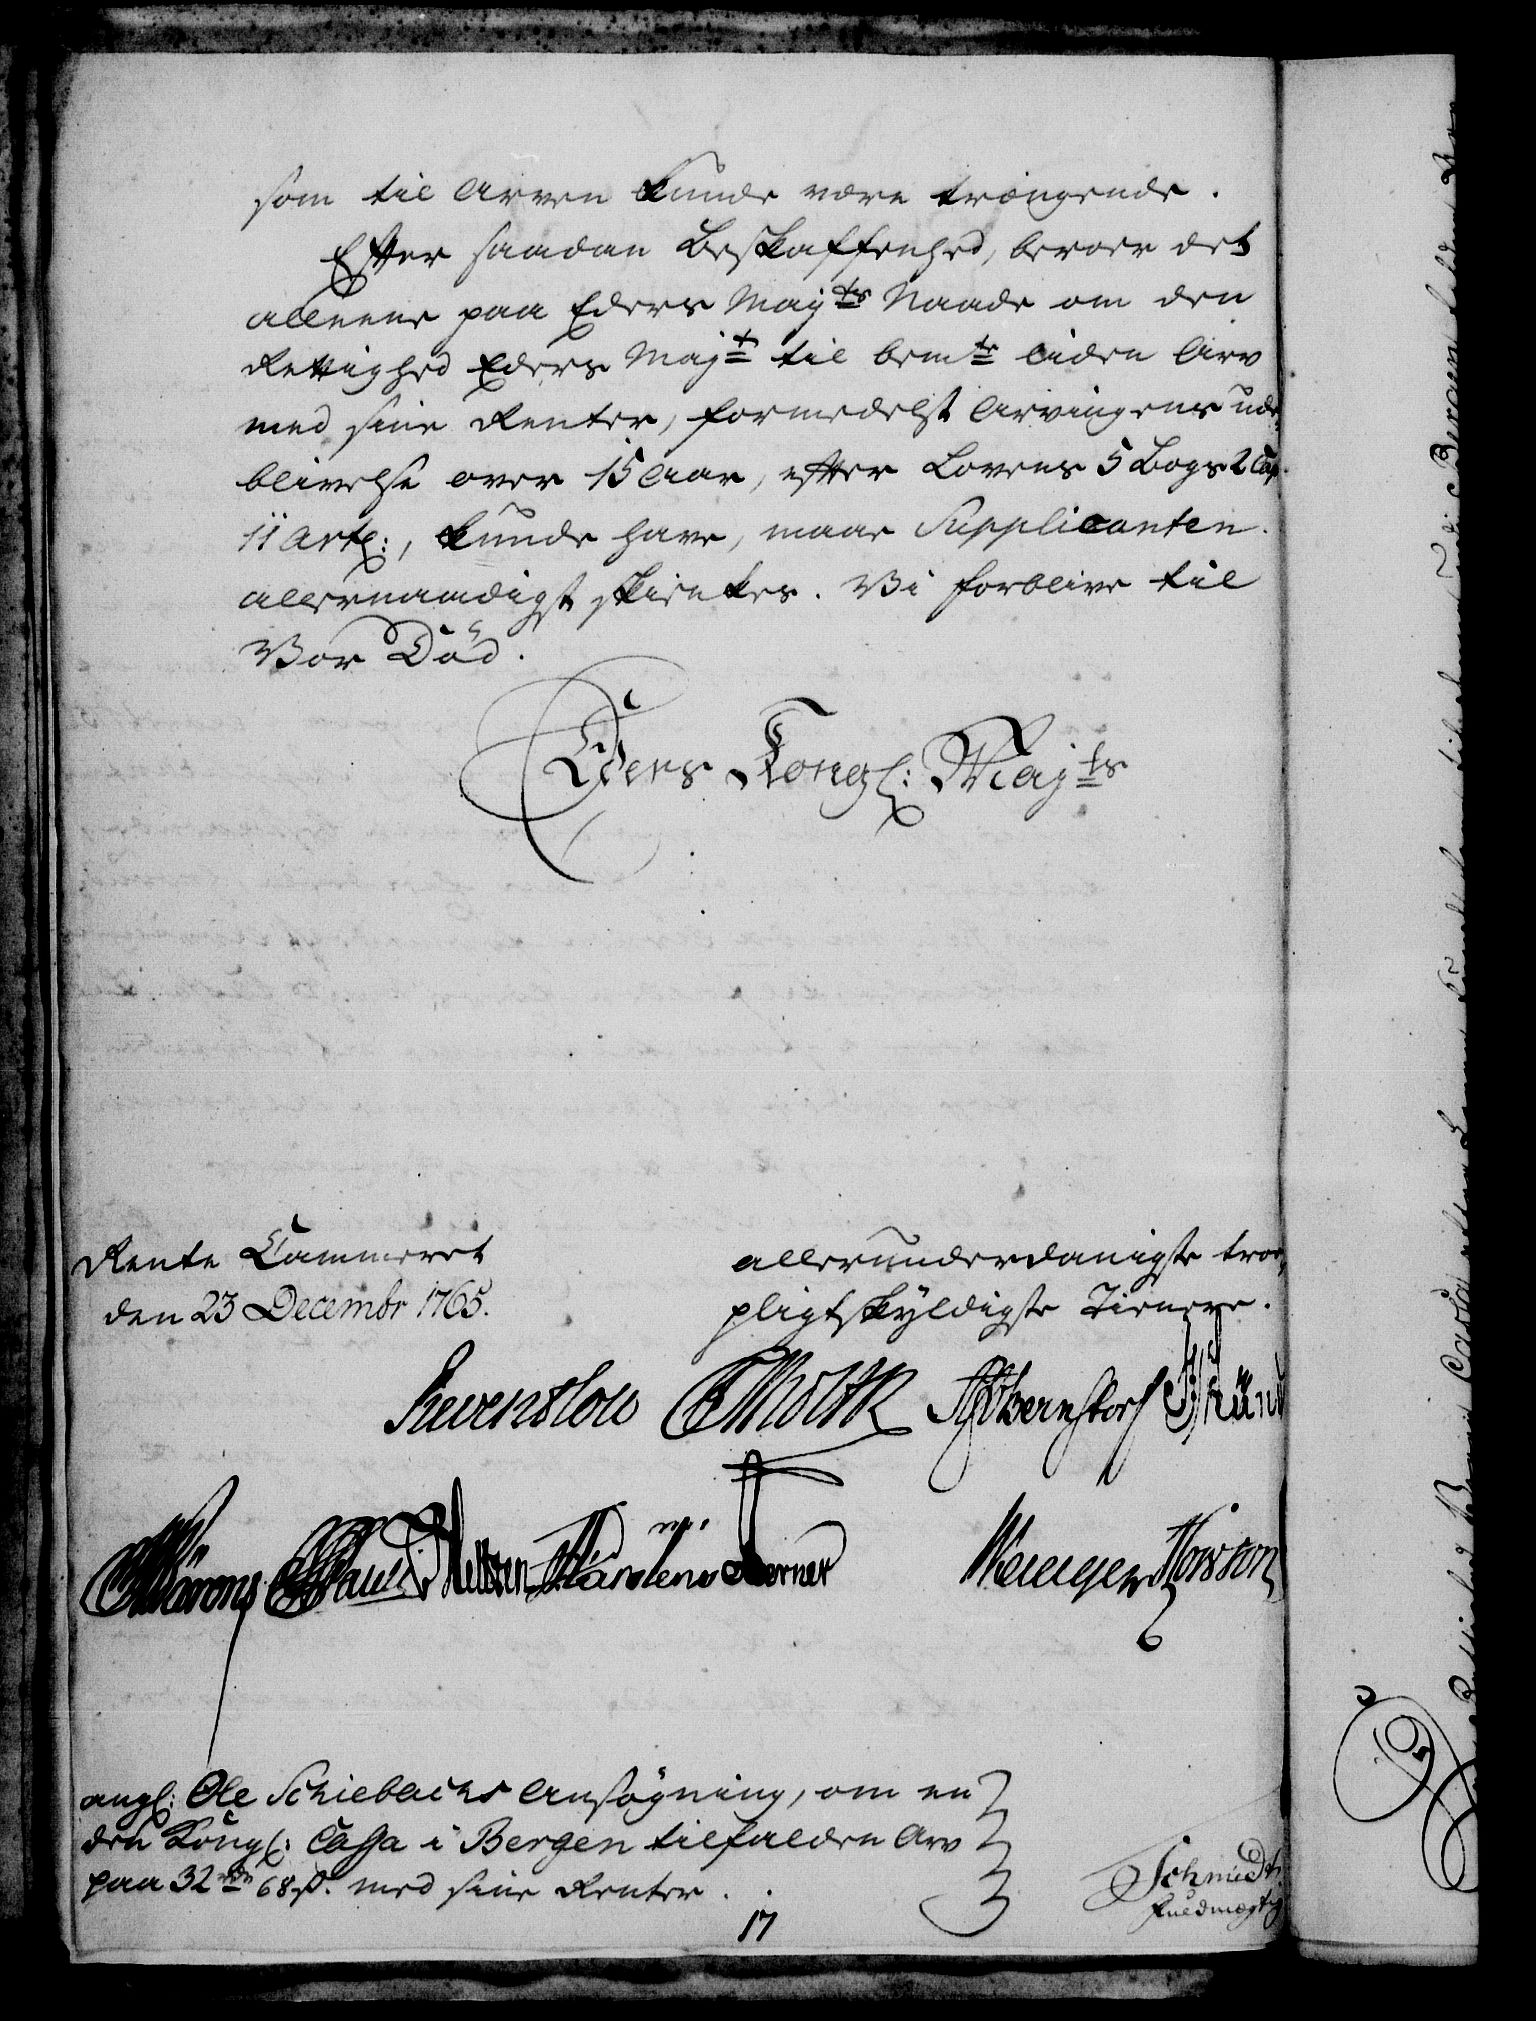 som til Arven kunde være trængende.
Efter saadan Beskaffenhed, beroer det
alleene paa Eders Mayts Naade om den
Rettighed Eders Majt til bemte liden Arv
med sine Renter, formedelst Arvingens ude-
blivelse over 15 Aar, efter Lovens 5 Bogs 2 Cap.
11 Artl:, kunde have, maae Supplicanten
allernaadigst skienkes. Vi forblive til
Vor Död.
Eders Kongl: Majts
Rente Cammeret
den 23 Decembr 1765.
allerunderdanigste troe
pligtskyldigste Tienere.
Reventlou Moltk Bernstorf
Wärons Nellsen Kärstens Berner
angl: Ole Schiebachs Ansögning, om en
den Kongl: Cassa i Bergen tilfalden Arv
paa 32 rdr 68 s. med sine Renter.
Schmidt.
Fuldmegtig
17